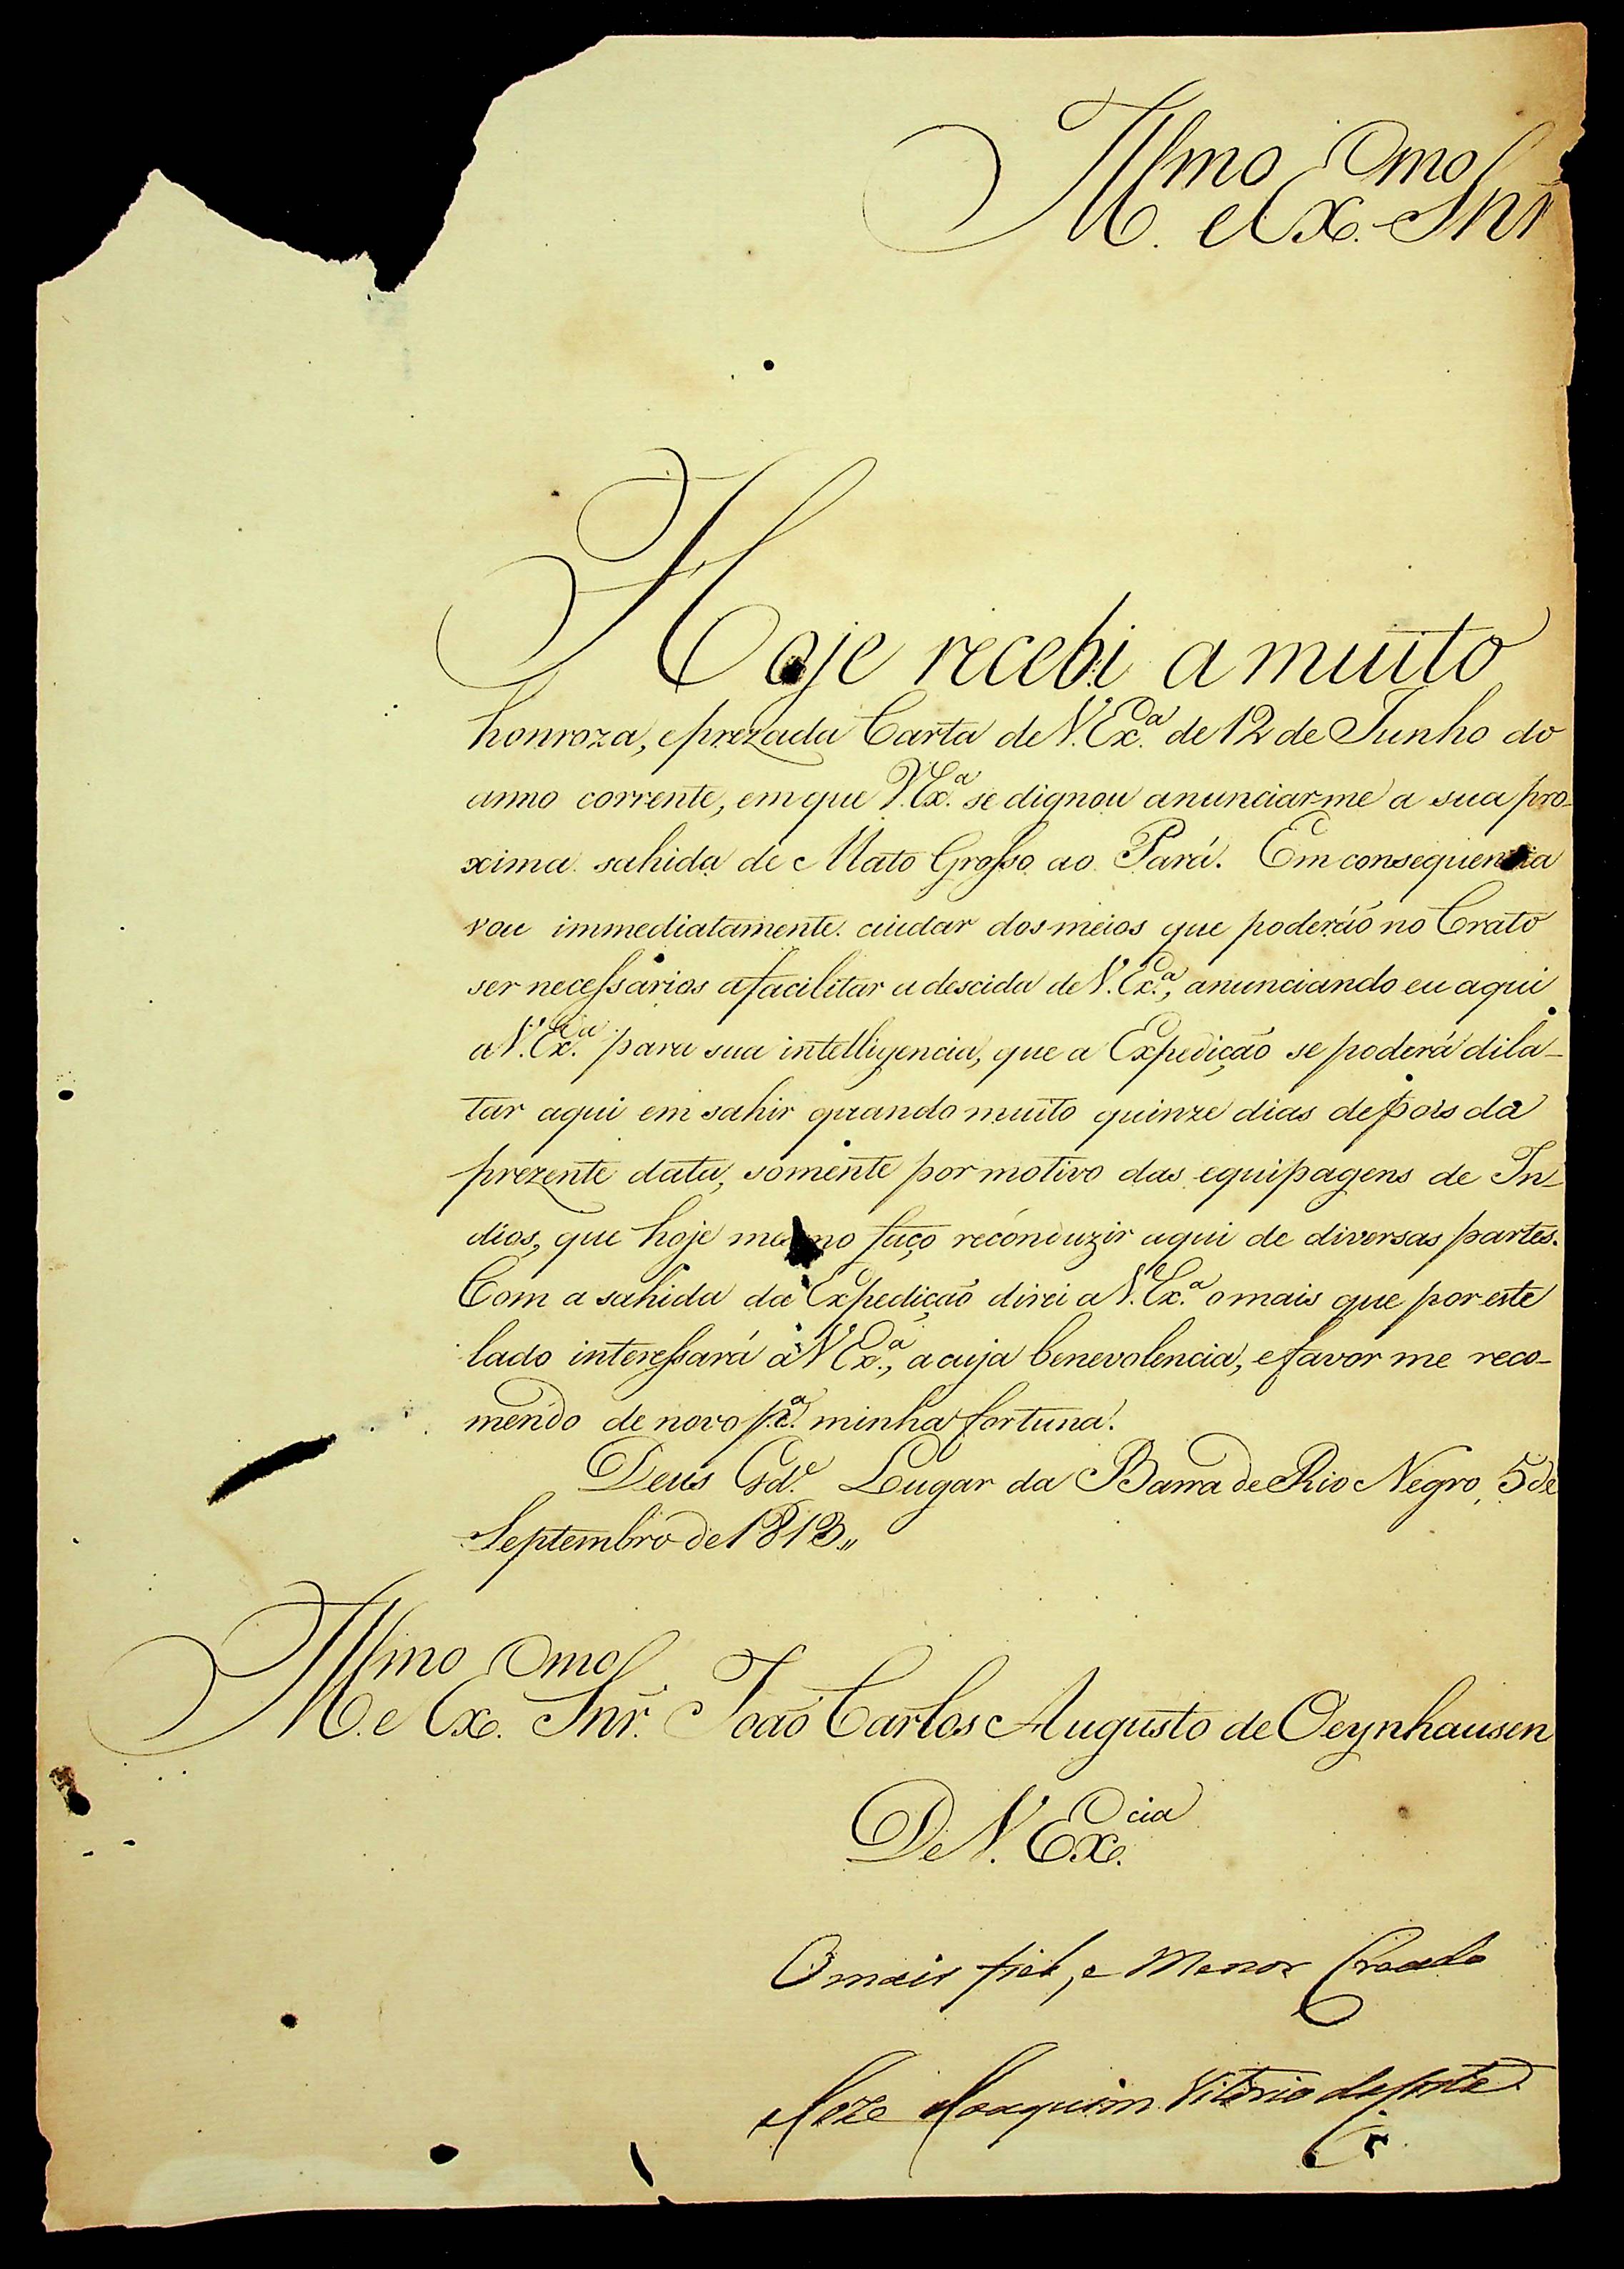 Illmo e Exmo Snr
Hoje recebi a muito
honroza, e prezada Carta de V. Exa. de 12 de Junho do
anno corrente, em que V. Exa. se dignou anunciarme a sua pro-
xima sahida de Mato Grosso ao Pará. Em consequencia
vou immediatamente cuidar dos meios que poderáõ no Crato
ser necessarios a facilitar a descida de V. Exa., anunciando eu aqui
a V. Exa. para sua intelligencia, que a Expedição se poderá dila-
tar aqui em sahir quando muito quinze dias depois da
prezente data, somente por motivo das equipagens de In-
dios, que hoje mesmo faço reconduzir aqui de diversas partes.
Com a sahida da Expedição direi a V. Exa. o mais que por este
lado interessará a V Exa., a cuja benevolencia, e favor me reco-
mendo de novo pa. minha fortuna.
Deus Gde. Lugar da Barra de Rio Negro, 5 de
Septembro de 1813
Illmo e Exmo Snr. João Carlos Augusto de Oeynhausen
De V. Excia.
O mais fiel, e Menor Creado
Joze Joaquim Vitorio da Costa